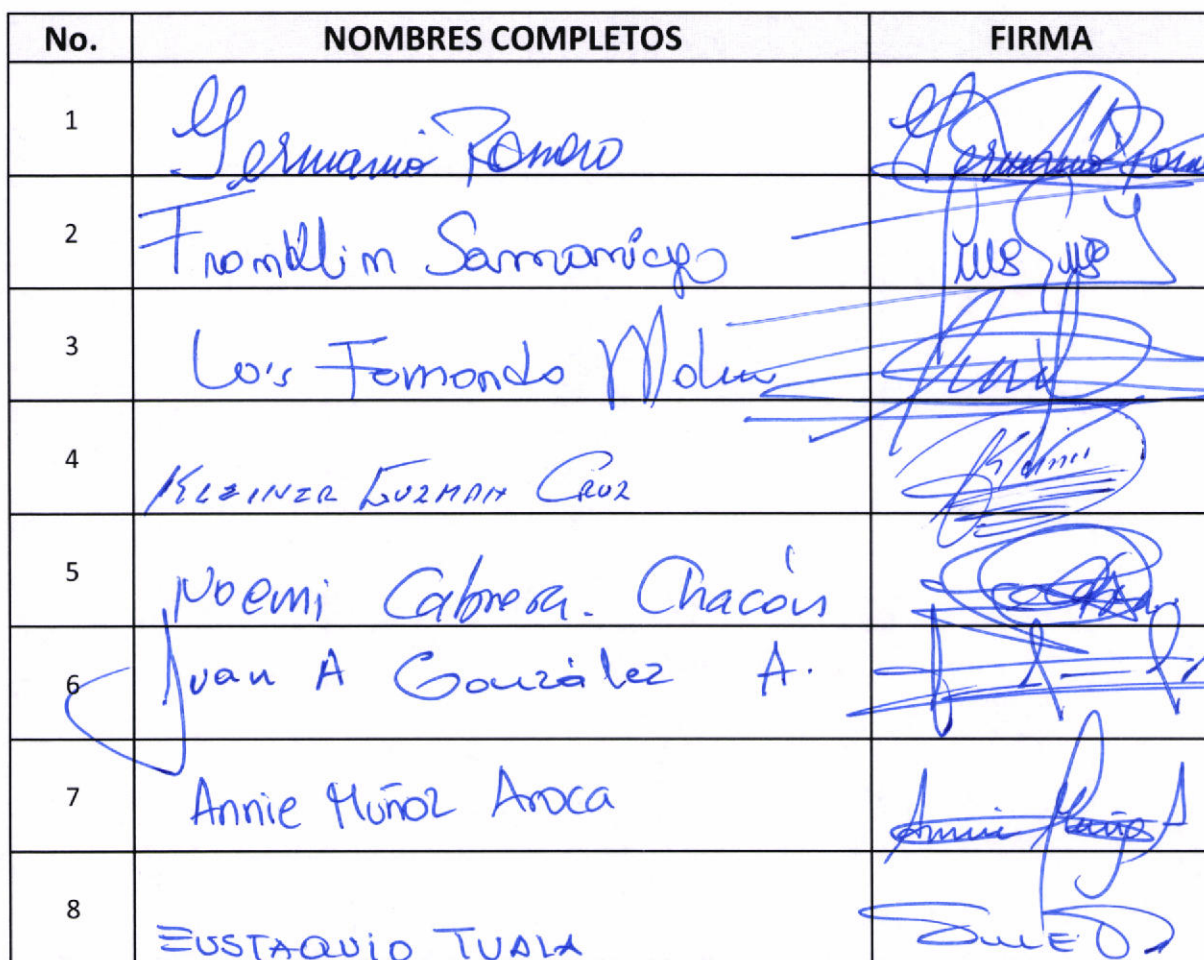 No. NOMBRES COMPLETOS FIRMA
1 Germania Romero Germania Rome
2 Franklin Samaniego
3 Luis Fernando Molina
4 KLEINER GUZMAN CRUZ Kleiner
5 Noemi Cabrera. Chacón
6 Juan A González A.
7 Annie Muñoz Aroca Annie Muñoz A
8 EUSTAQUIO TUALA